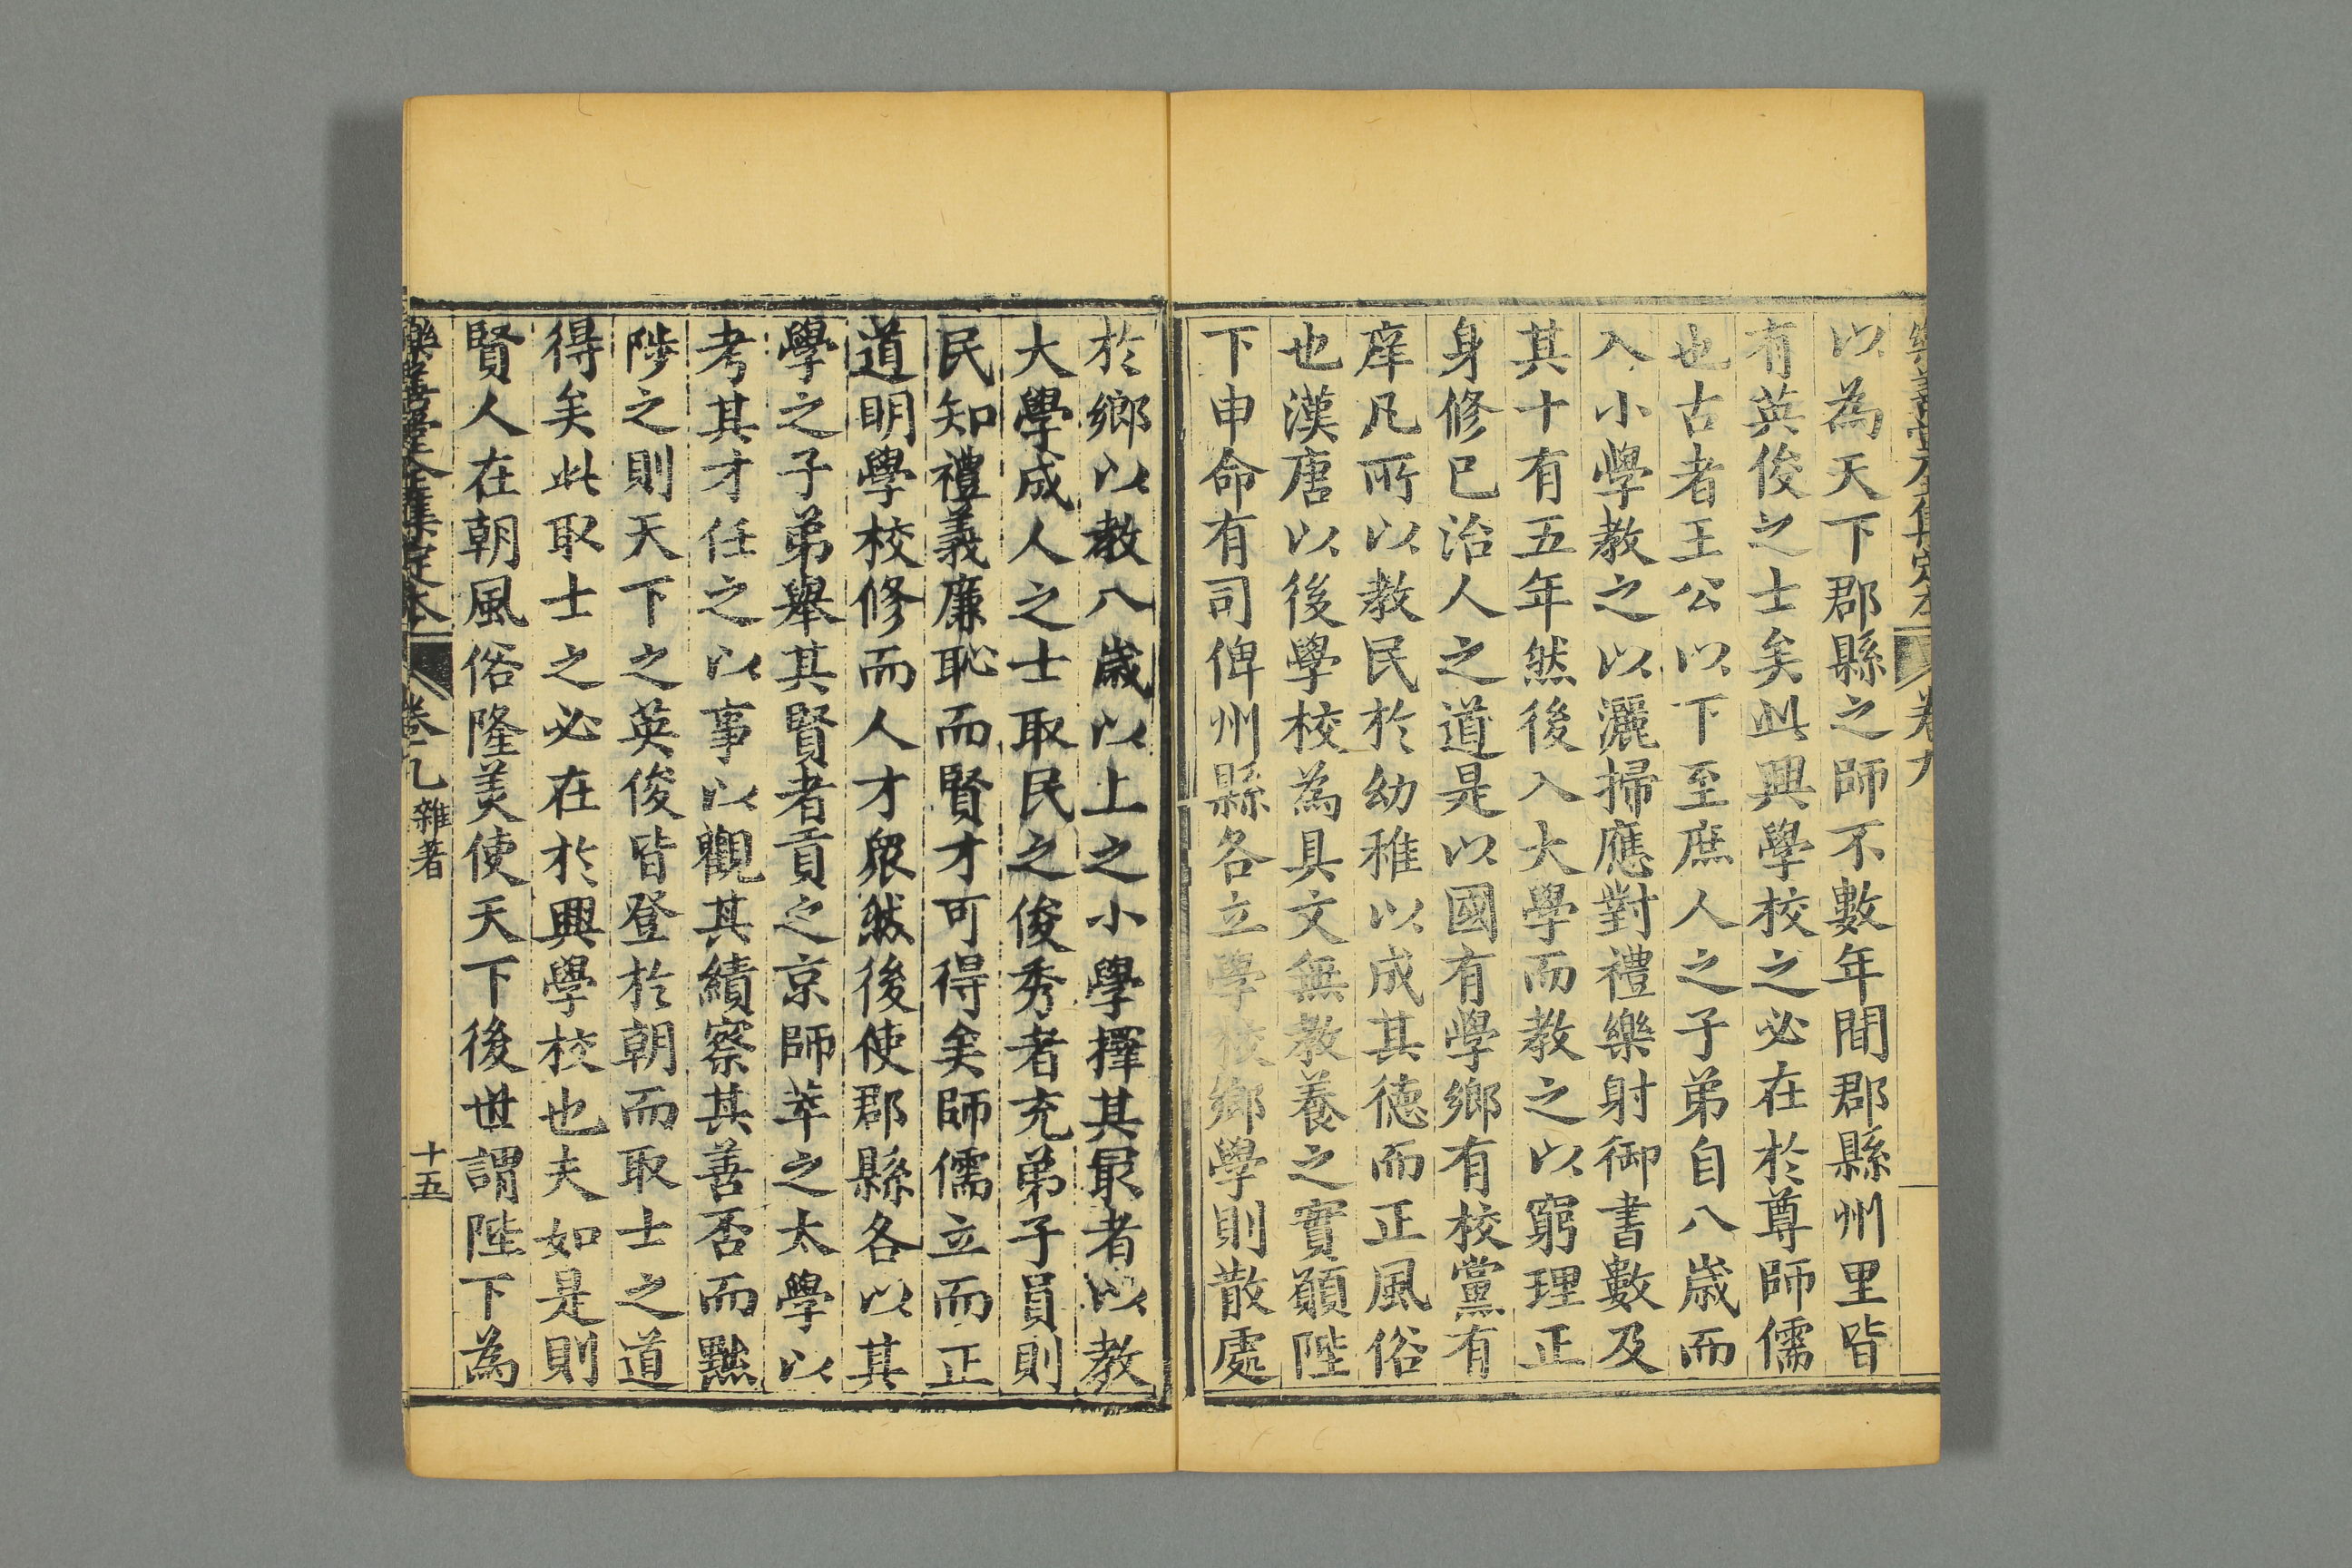 樂善堂全集定本 卷九
以為天下郡縣之師不數年間郡縣州里皆
有英俊之士矣此興學校之必在於尊師儒
也古者王公以下至庶人之子弟自八歲而
入小學教之以灑掃應對禮樂射御書數及
其十有五年然後入大學而教之以窮理正
身修已治人之道是以國有學鄉有校黨有
庠凡所以教民於幼稚以成其德而正風俗
也漢唐以後學校為具文無教養之實願陛
下申命有司俾州縣各立學校鄉學則散處
於鄉以教八歲以上之小學擇其最者以教
大學成人之士取民之俊秀者充弟子員則
民知禮義廉恥而賢才可得矣師儒立而正
道明學校修而人才眾然後使郡縣各以其
學之子弟舉其賢者貢之京師萃之太學以
考其才任之以事以觀其績察其善否而黜
陟之則天下之英俊皆登於朝而取士之道
得矣此取士之必在於興學校也夫如是則
賢人在朝風俗隆美使天下後世謂陛下為
樂善堂全集定本 卷九 雜著 十五